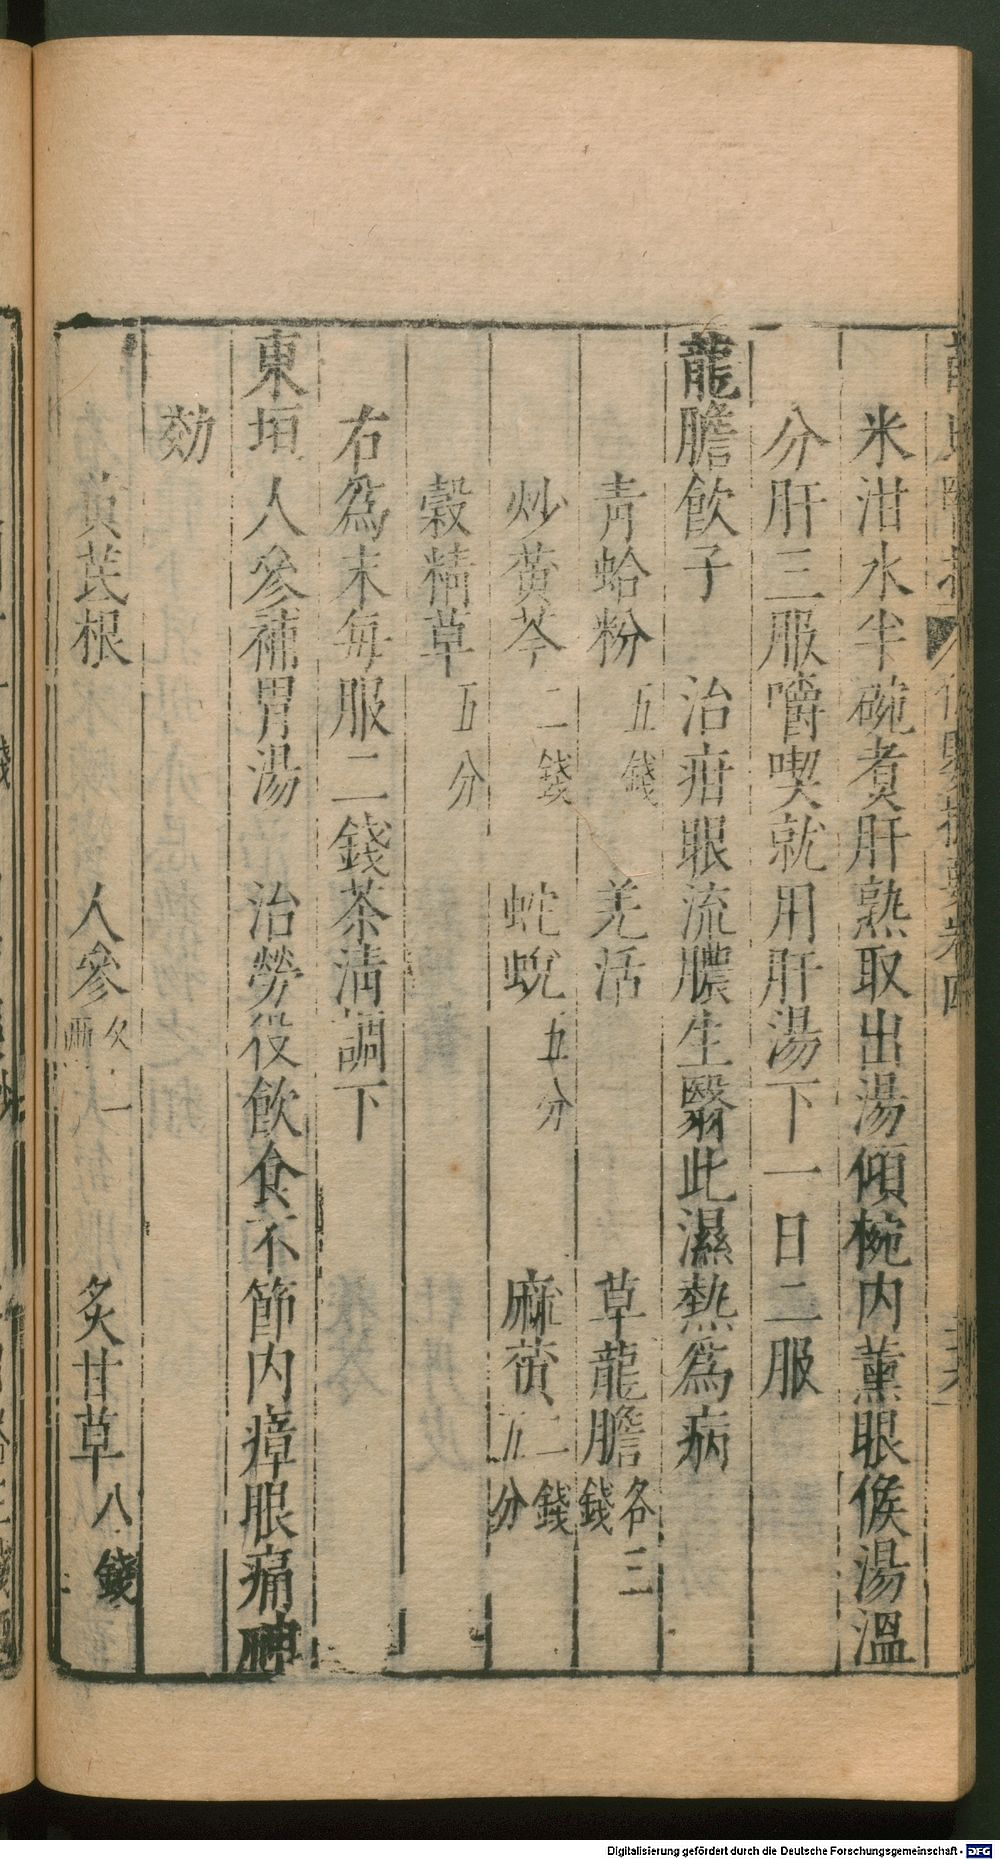 米泔水半碗煮肝熟取出湯傾椀内薰眼候湯温
分肝三服嚼喫就用肝湯下一日二服
龍膽飲子 治疳眼流膿生翳此濕熱為病
青蛤粉五錢 羌活 草龍膽各三錢
炒黄芩二錢 蛇蛻五分 麻黄二錢五分
穀精草五分
右為末每服二錢茶清調下
東垣人參補胃湯 治勞役飲食不節内瘴眼痛神
効
黄芪根 人參各一兩 炙甘草八錢
Digitalisierung gefördert durch die Deutsche Forschungsgemeinschaft - DFG